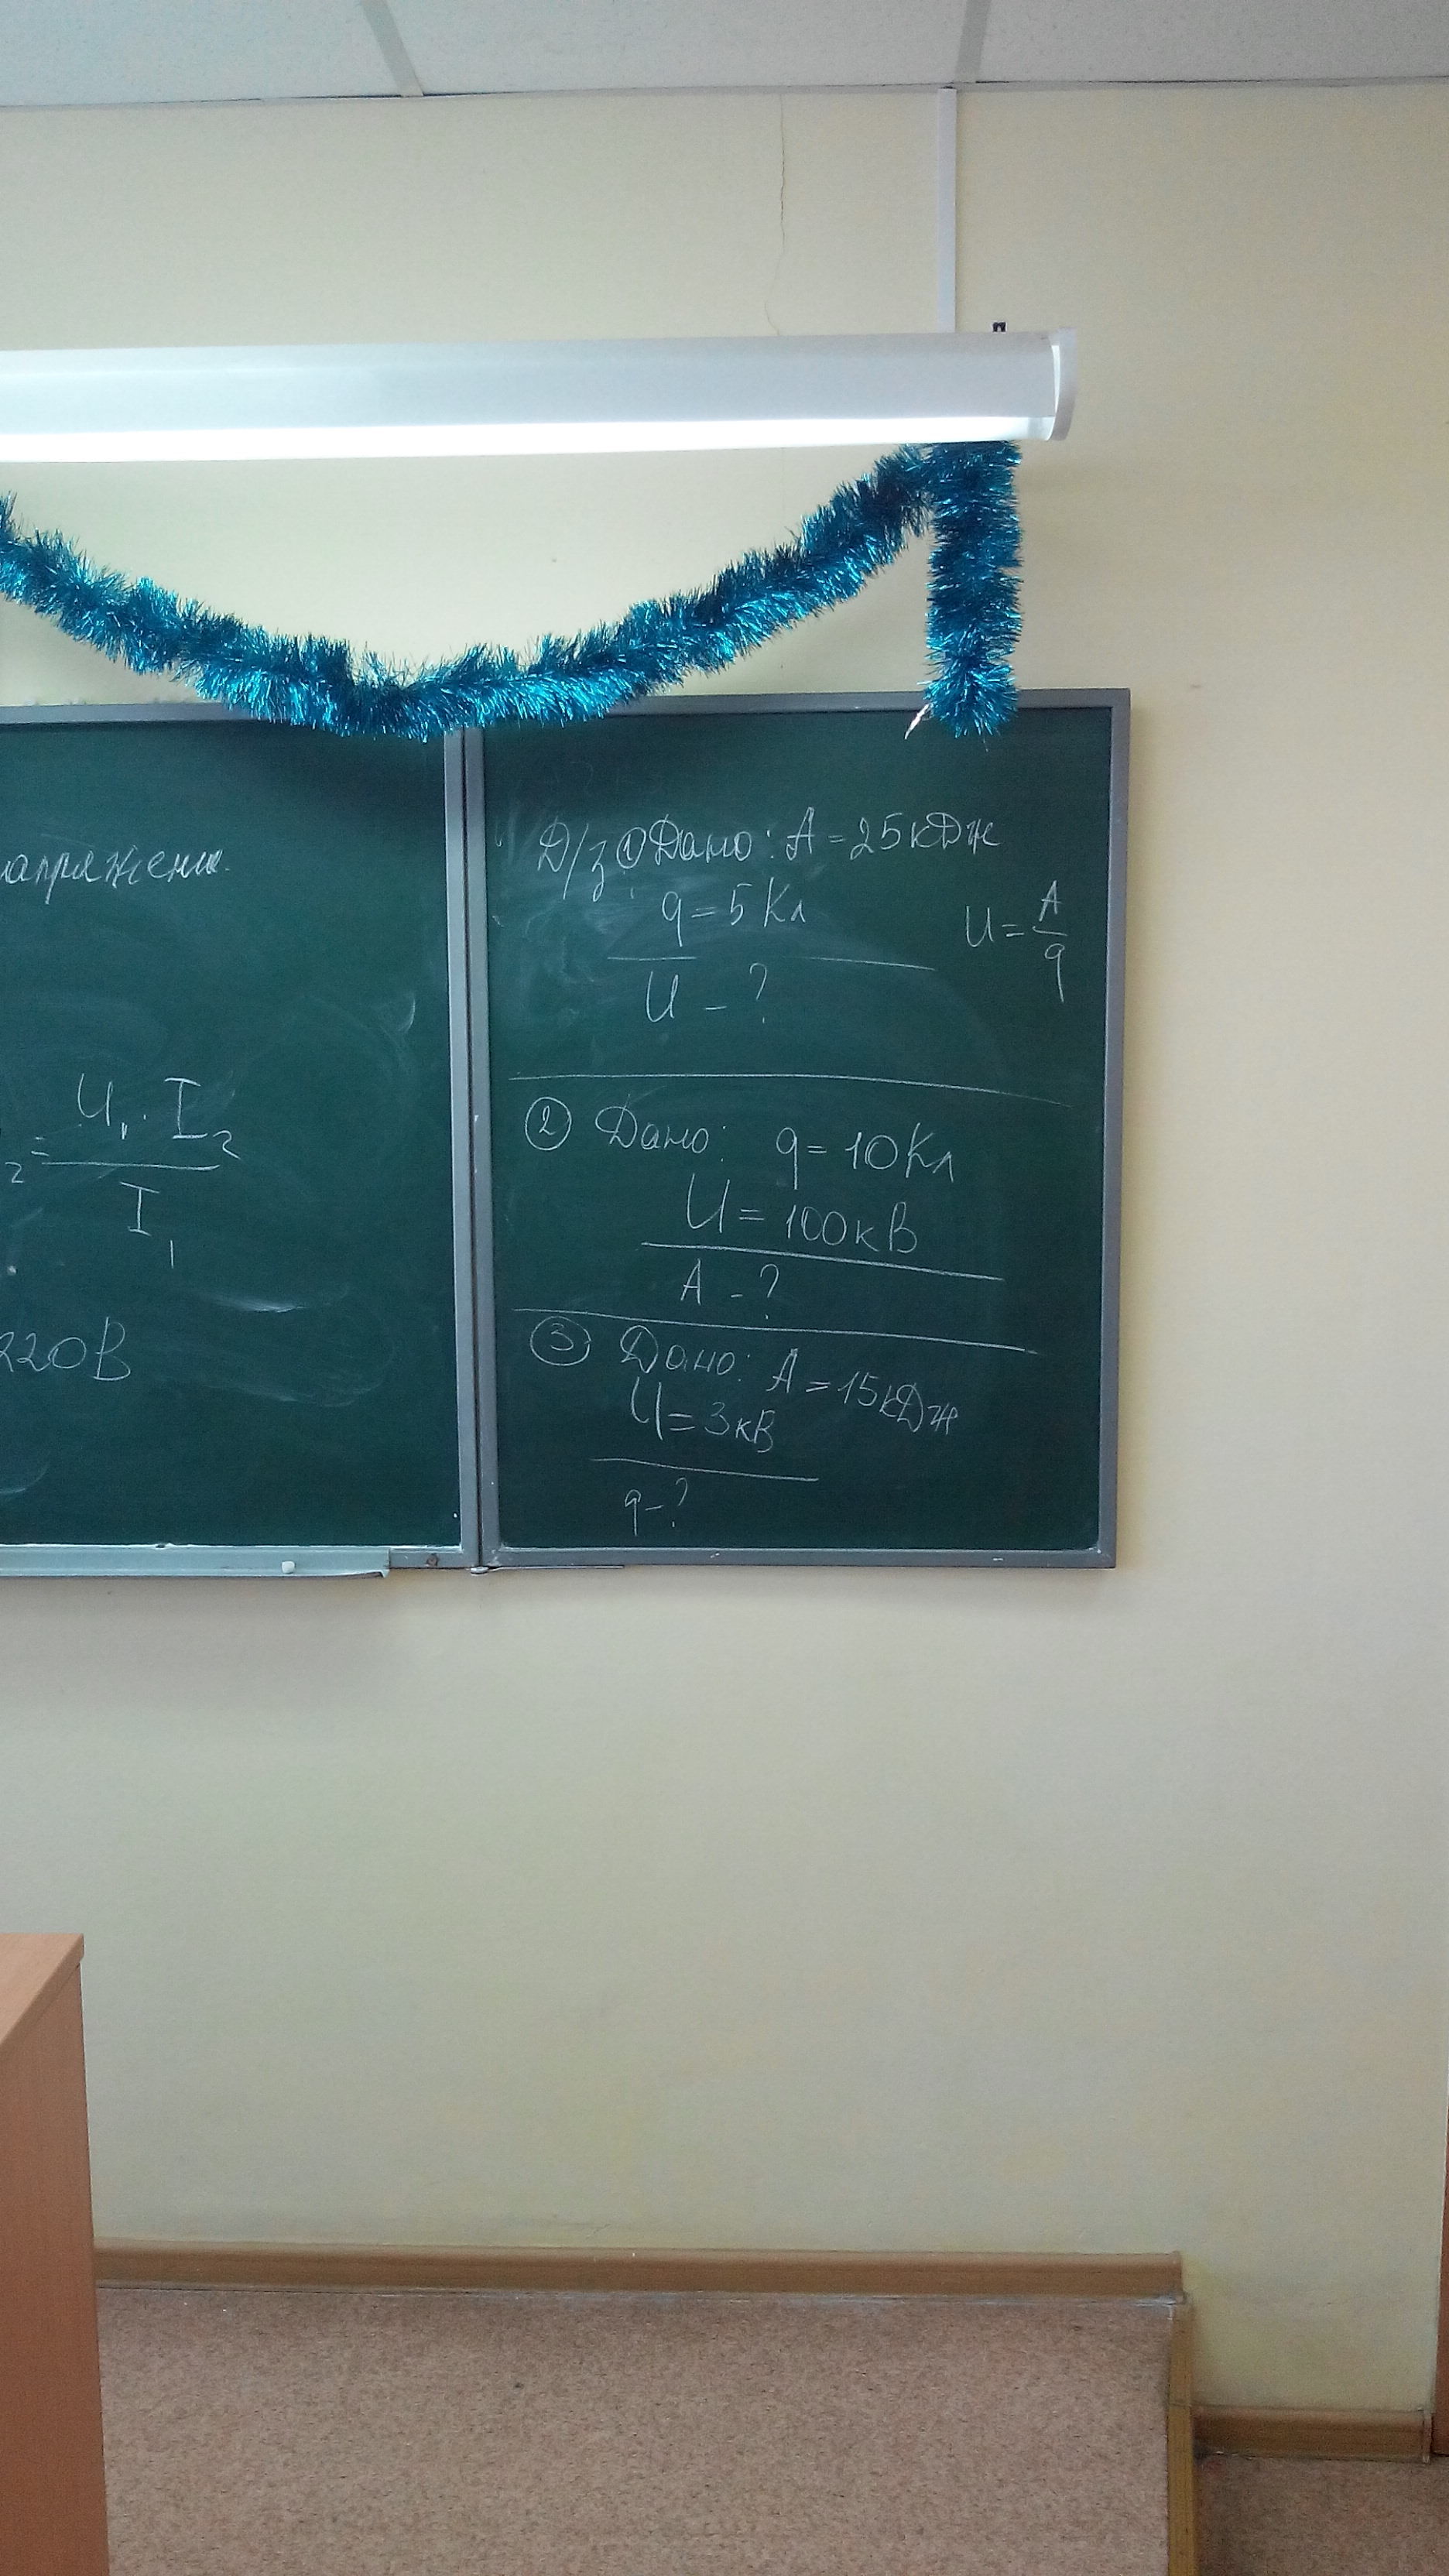 напряжение.
2 = U₁ · I₂
I₁
220В
Д/з ① Дано: A = 25кДж
q = 5 Кл
U = A
q
U - ?
② Дано: q = 10Кл
U = 100кВ
A - ?
③ Дано: A = 15кДж
U = 3кВ
q - ?